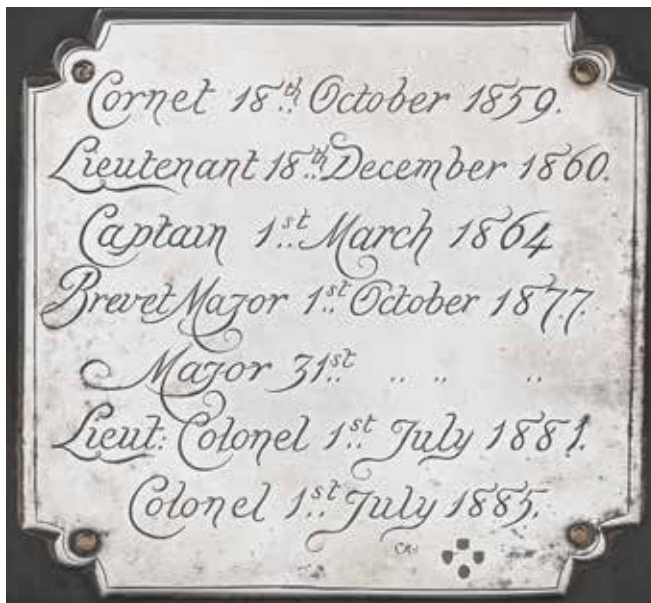 Cornet 18th October 1859.
Lieutenant 18th December 1860.
Captain 1st March 1864
Brevet Major 1st October 1877.
Major 31st .. .. ..
Lieut: Colonel 1st July 1881.
Colonel 1st July 1885.